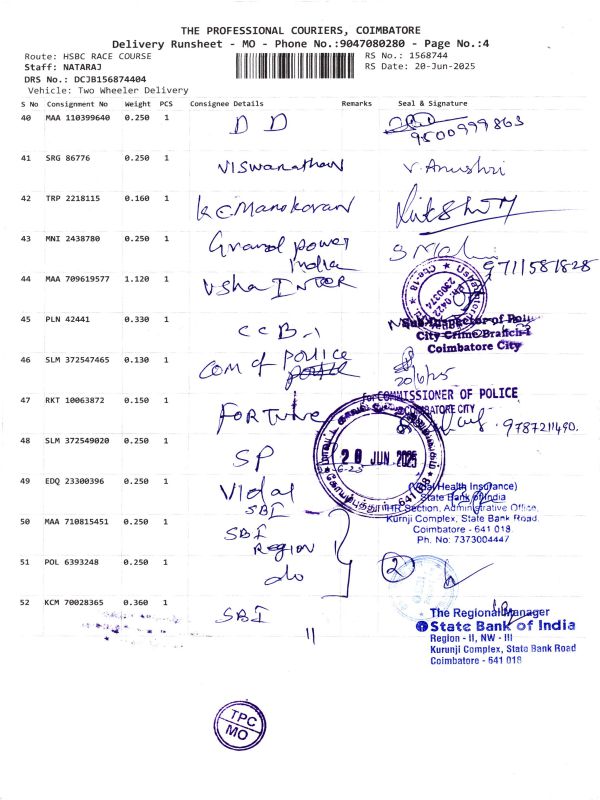 THE PROFESSIONAL COURIERS, COIMBATORE
Delivery Runsheet - MO - Phone No.:9047080280 - Page No.:4
Route: HSBC RACE COURSE
RS No.: 1568744
Staff: NATARAJ
RS Date: 20-Jun-2025
DRS No.: DCJB156874404
Vehicle: Two Wheeler Delivery
S No Consignment No Weight PCS Consignee Details Remarks Seal & Signature
40 MAA 110399640 0.250 1 D D
9500999863
41 SRG 86776 0.250 1 Viswanathan V. Anushri
42 TRP 2218115 0.160 1 K C Manokaran
43 MNI 2438780 0.250 1 Grand power
India
9711581828
44 MAA 709619577 1.120 1 Usha INTER
45 PLN 42441 0.330 1 CCB-1
Sub-Inspector of Police
City Crime Branch-I
Coimbatore City
46 SLM 372547465 0.130 1 COM of police
20/6/25
for COMMISSIONER OF POLICE
COIMBATORE CITY
47 RKT 10063872 0.150 1 FORTUNE
9787211490.
48 SLM 372549020 0.250 1 SP
20 JUN 2025
641 018
49 EDQ 23300396 0.250 1 Vidal
SBI
(Vidal Health Insurance)
State Bank of India
HR Section, Administrative Office,
Kurnji Complex, State Bank Road,
Coimbatore - 641 018.
Ph. No: 7373004447
50 MAA 710815451 0.250 1 SBI
Region
51 POL 6393248 0.250 1 do
2
52 KCM 70028365 0.360 1 SBI
11
The Regional Manager
State Bank of India
Region - II, NW - III
Kurunji Complex, State Bank Road
Coimbatore - 641 018
TPC
MO